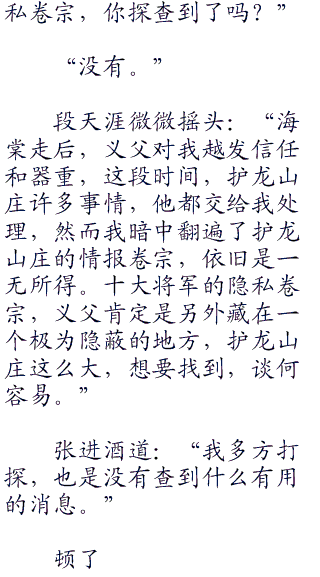 私卷宗，你探查到了吗？”
“没有。”
段天涯微微摇头：“海
棠走后，义父对我越发信任
和器重，这段时间，护龙山
庄许多事情，他都交给我处
理，然而我暗中翻遍了护龙
山庄的情报卷宗，依旧是一
无所得。十大将军的隐私卷
宗，义父肯定是另外藏在一
个极为隐蔽的地方，护龙山
庄这么大，想要找到，谈何
容易。”
张进酒道：“我多方打
探，也是没有查到什么有用
的消息。”
顿了